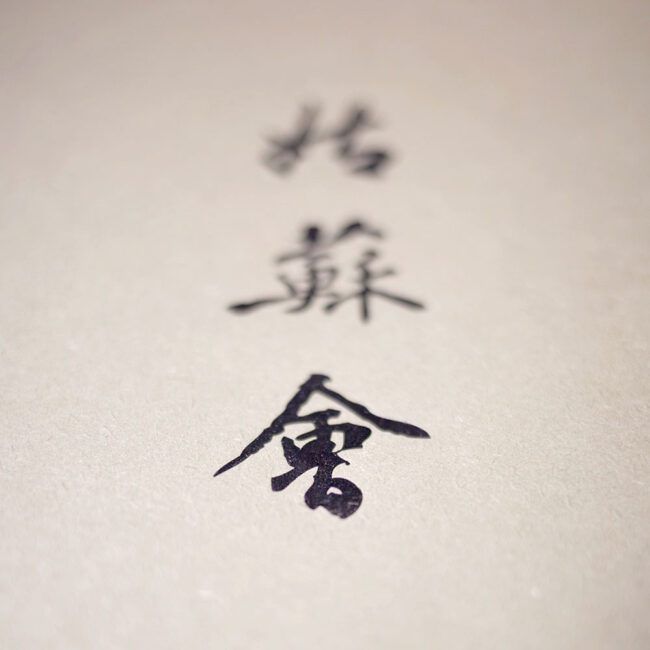 姑蘇會